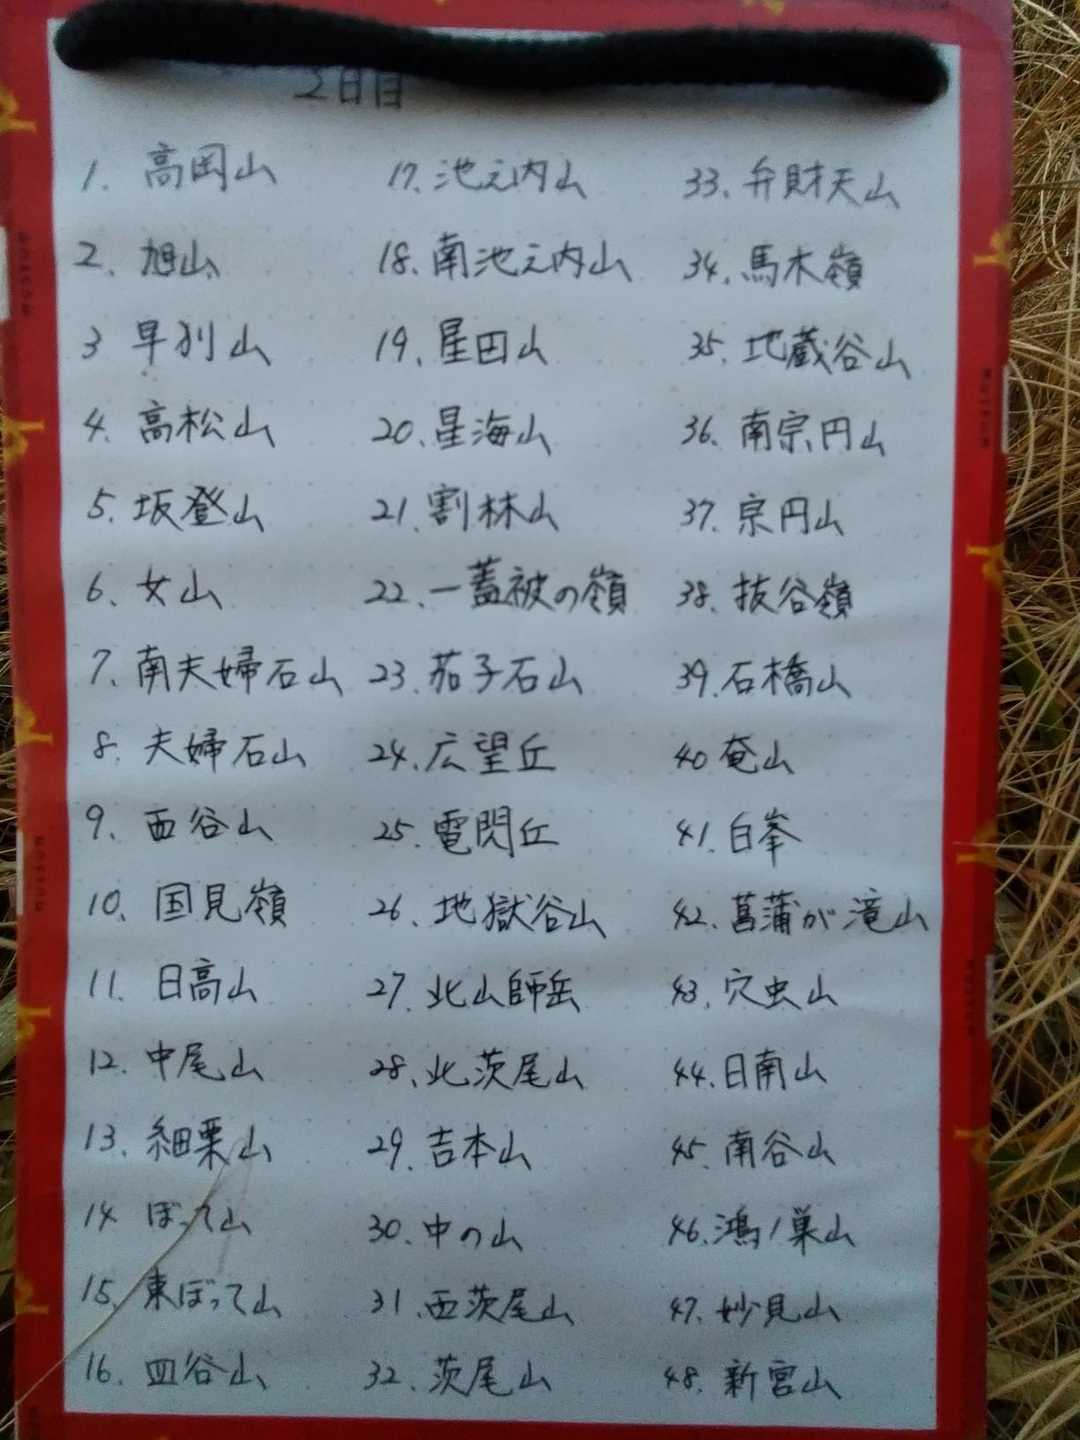 2日目
1. 高岡山
2. 旭山
3 早刈山
4. 高松山
5. 坂登山
6. 女山
7. 南夫婦石山
8. 夫婦石山
9. 西谷山
10. 国見嶺
11. 日高山
12. 中尾山
13. 細栗山
14 ぼって山
15. 東ぼって山
16. 皿谷山
17. 池之内山
18. 南池之内山
19. 星田山
20. 星海山
21. 割林山
22. 一蓋被の嶺
23. 茄子石山
24. 広望丘
25. 電閃丘
26. 地獄谷山
27. 北山師岳
28. 北茨尾山
29. 吉本山
30. 中の山
31. 西茨尾山
32. 茨尾山
33. 弁財天山
34. 馬木嶺
35. 地蔵谷山
36. 南宗円山
37. 宗円山
38. 抜谷嶺
39. 石橋山
40 奄山
41. 白峯
42. 菖蒲が滝山
43. 穴虫山
44. 日南山
45. 南谷山
46. 鴻ノ巣山
47. 妙見山
48. 新宮山